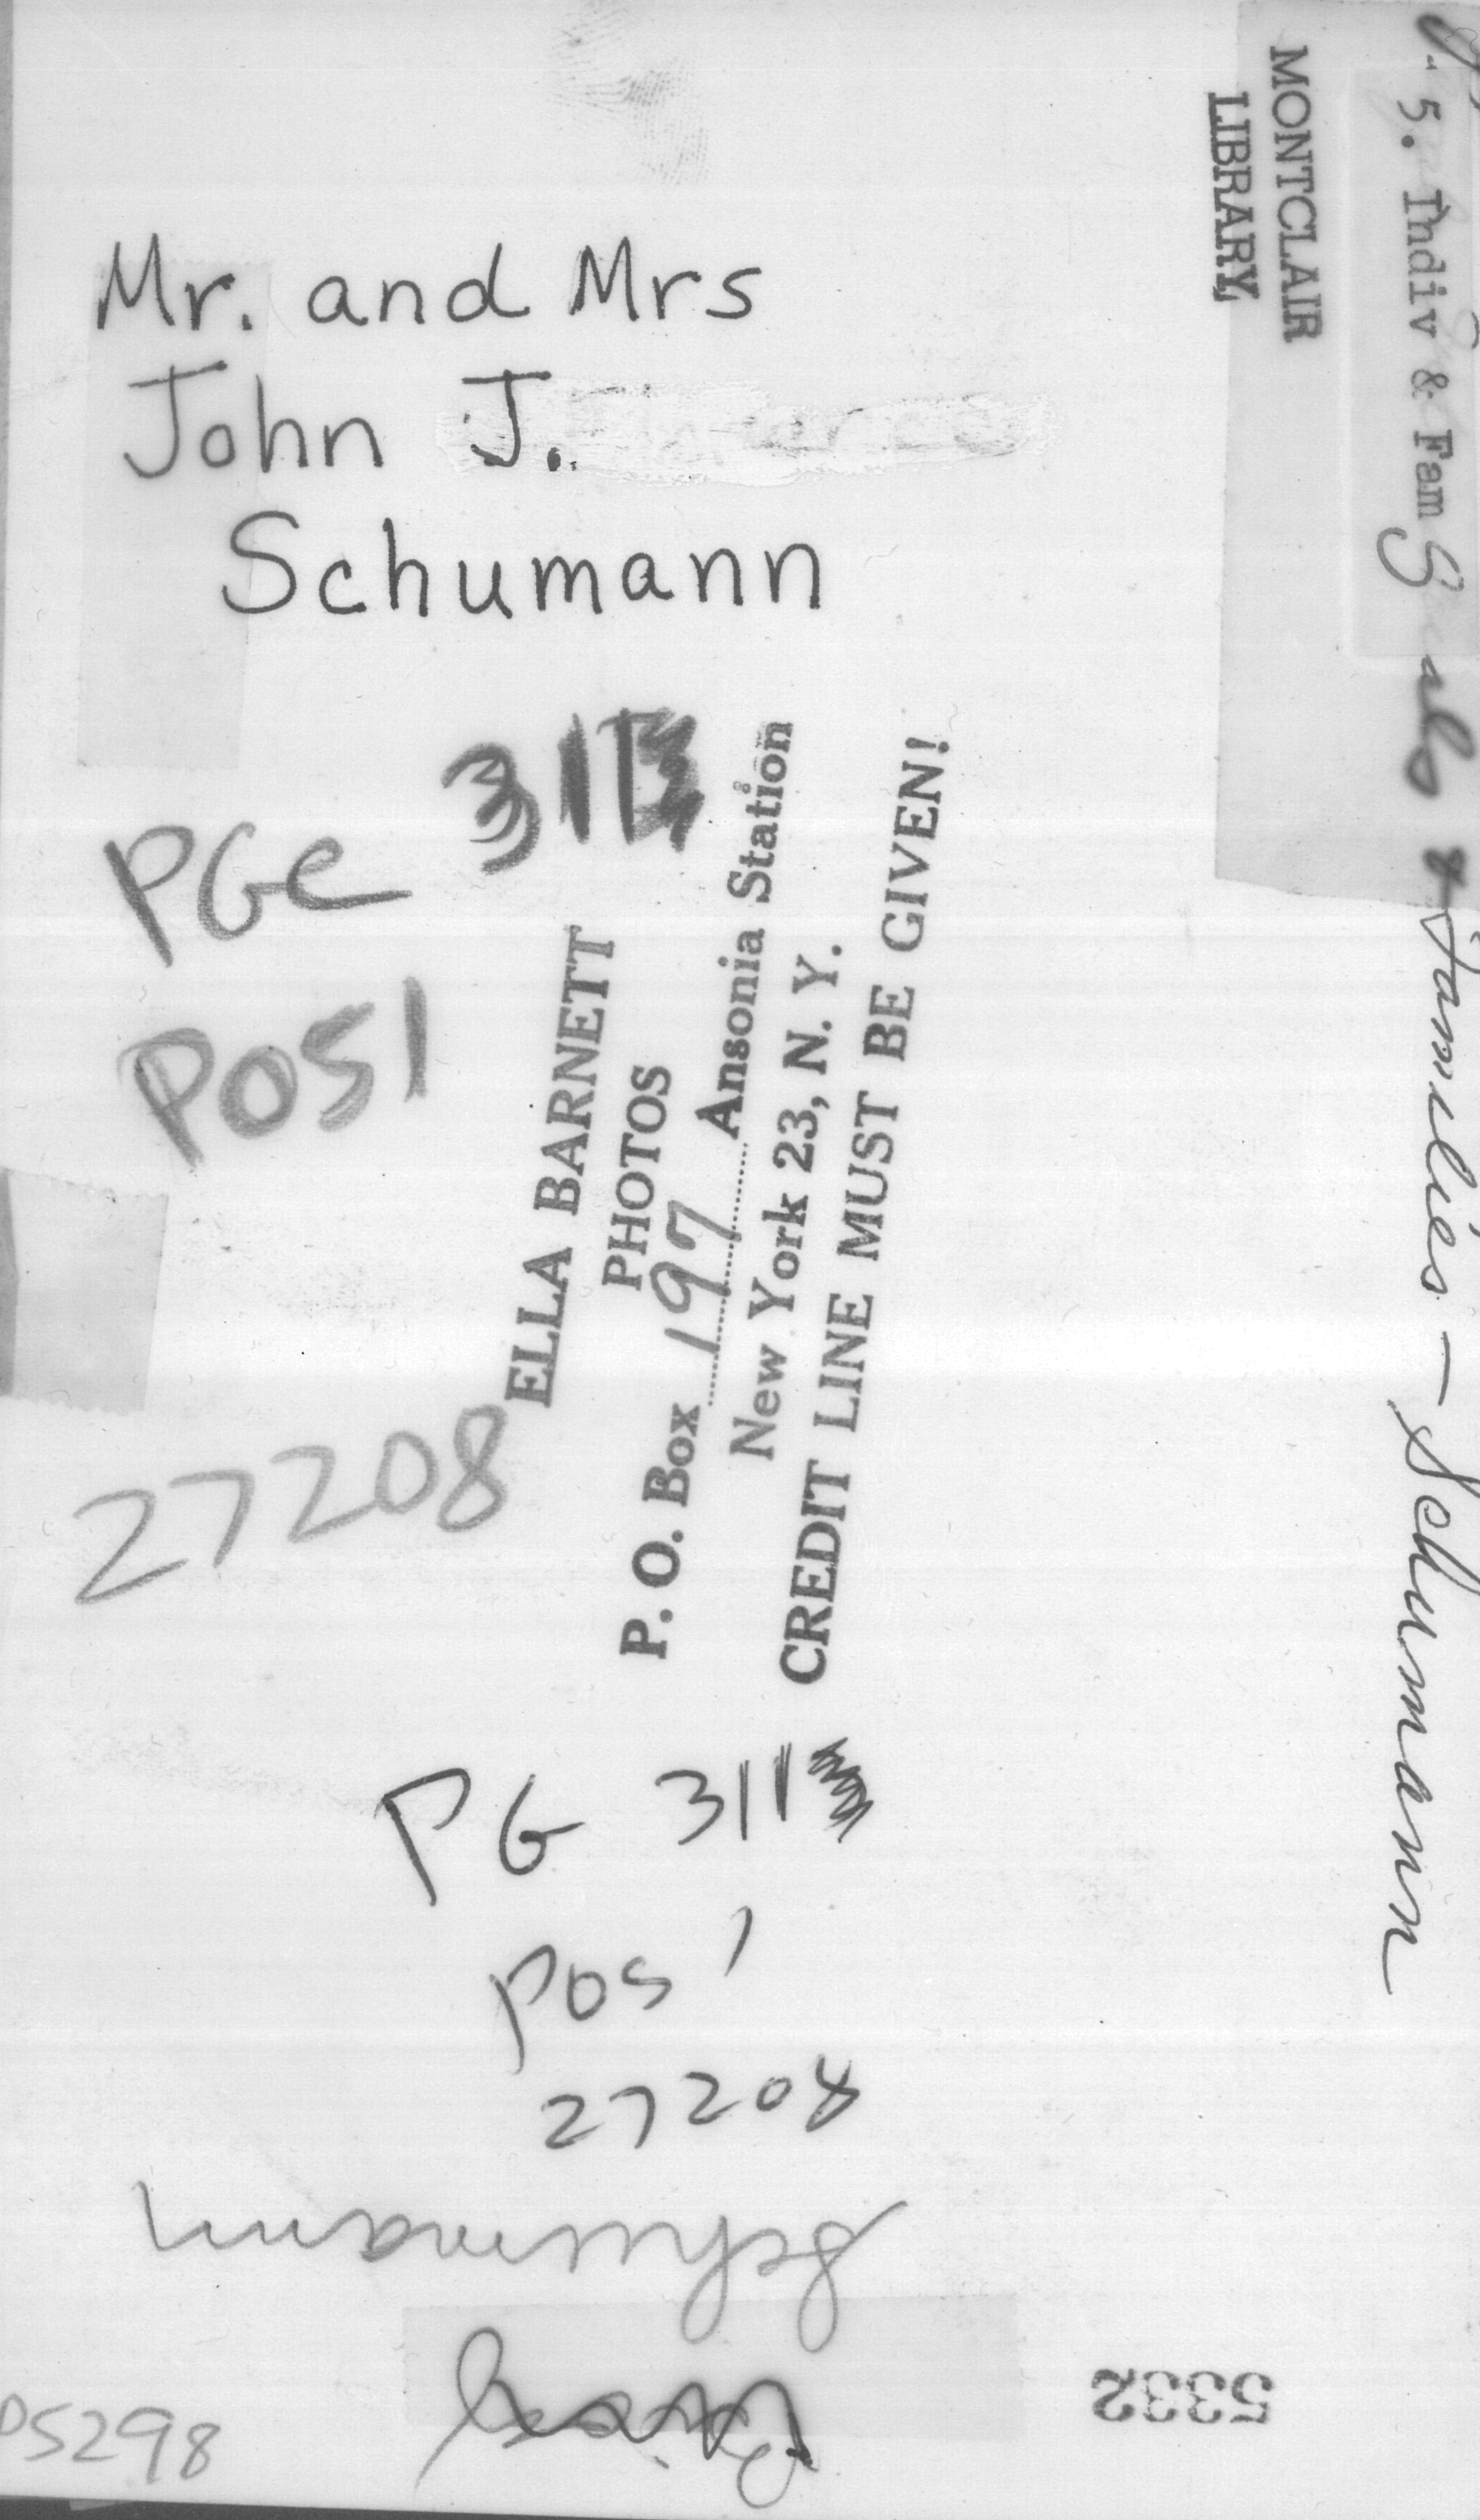 Mr. and Mrs
John J.
Schumann
PGe 311
POS1
27208
ELLA BARNETT
PHOTOS
P. O. Box 197 Ansonia Station
New York 23, N. Y.
CREDIT LINE MUST BE GIVEN!
PG 311
POS 1
27208
Schumann
5332
05298
MONTCLAIR
LIBRARY
5. Indiv & Fam
als & Families - Schumann